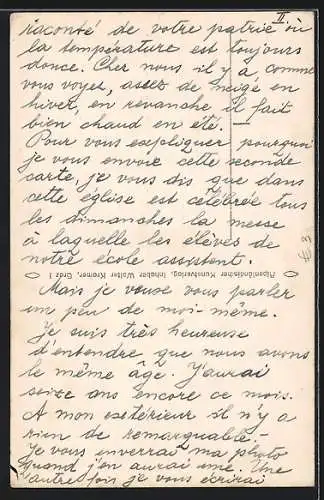 II.
raconté de votre patrie où
la température est toujours
douce. Chez nous il y a comme
vous voyez, assez de neige en
hiver, en revanche il fait
bien chaud en été. —
Pour vous expliquer pourquoi
je vous envoie cette seconde
carte, je vous dis que dans
cette église est célébrée tous
les dimanches la messe
à laquelle les élèves de
notre école assistent.
Alpenländischer Kunstverlag, Inhaber Walter Kramer, Graz 1
Mais je veux vous parler
un peu de moi-même.
Je suis très heureuse
d'entendre que nous avons
le même âge. J'aurai
seize ans encore ce mois.
A mon extérieur il n'y a
rien de remarquable. -
Je vous enverrai ma photo
quand j'en aurai une. Une
autre fois je vous écrirai